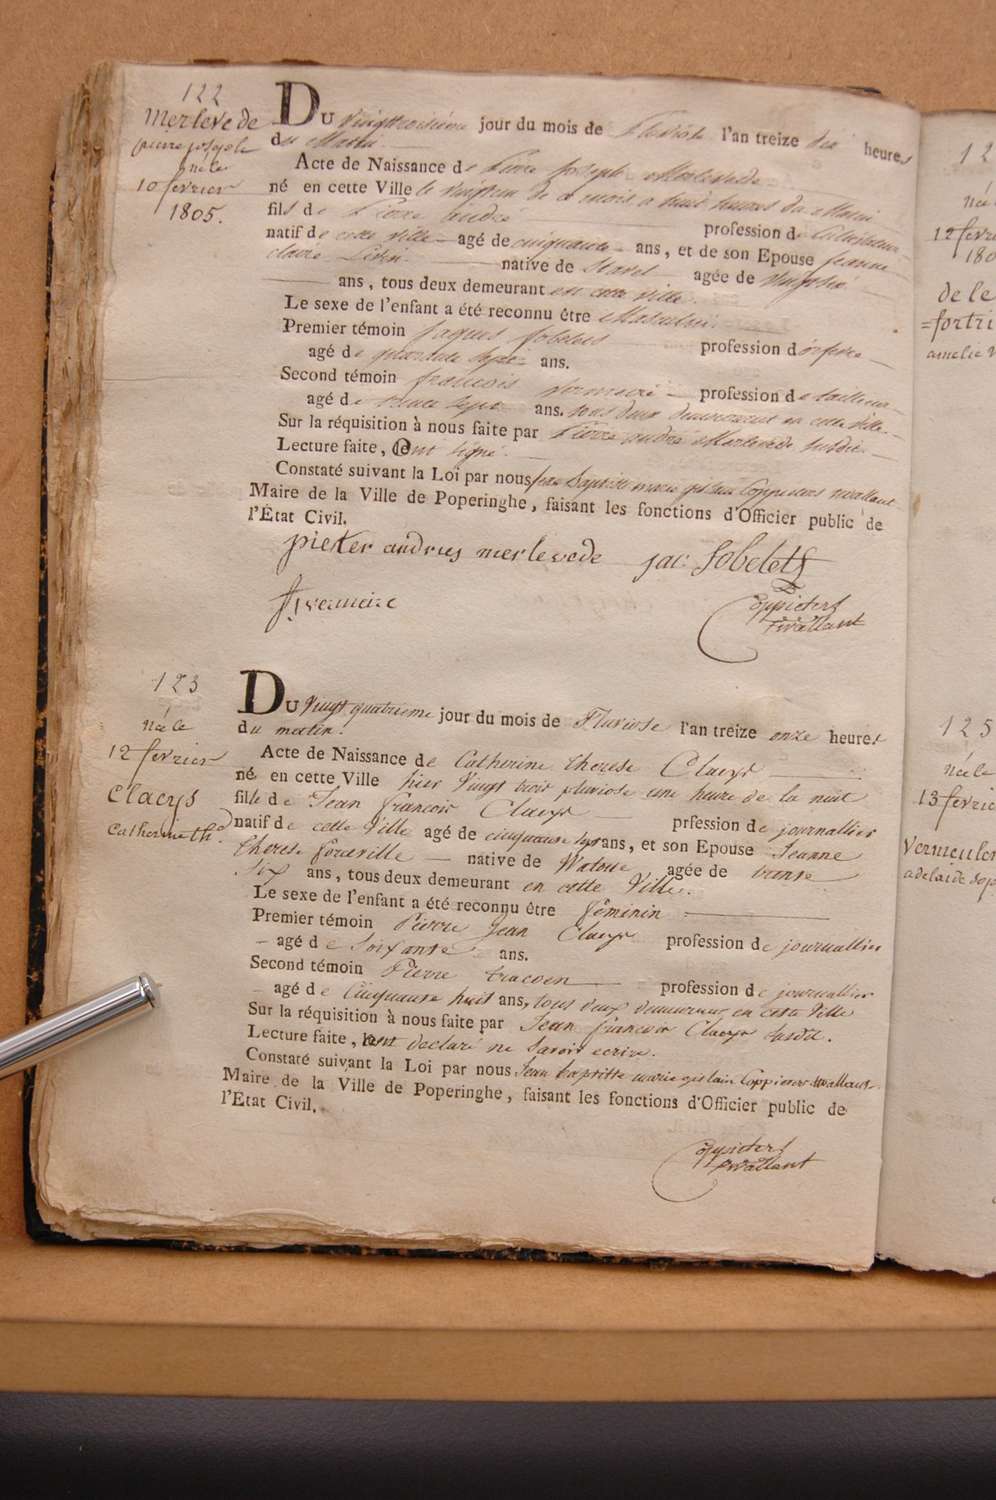 122
Merlevede
pierre joseph
né le
10 fevrier
1805.
DU vingttroisieme jour du mois de Pluviose l'an treize dix heures
du Matin.
Acte de Naissance de Pierre Joseph Merlevede
né en cette Ville le vingt un de ce mois a huit heures du Matin
fils de Pierre André profession de Cultivateur
natif de cette ville agé de cinquante ans, et de son Epouse Jeanne
claire native de Stavel agée de
ans, tous deux demeurant en cette ville.
Le sexe de l'enfant a été reconnu être Masculin.
Premier témoin Jaques Sobelets profession d'orfevre
agé de quarante sept ans.
Second témoin francois Vermeire profession de tailleur
agé de trente sept ans. tous deux demeurant en cette ville.
Sur la réquisition à nous faite par Pierre andré Merlevede susdit.
Lecture faite, ont signé.
Constaté suivant la Loi par nous Jean Baptiste marie gislain Coppieters wallant
Maire de la Ville de Poperinghe, faisant les fonctions d'Officier public de
l'État Civil.
pieter andries merlevede jac: Sobelets
F: vermeire Coppieters
twallant
123
née le
12 fevrier
Claeys
Catherine th.
DU Vingt quatrieme jour du mois de Pluviose l'an treize onze heures
du matin.
Acte de Naissance de Catherine Therese Claeys
né en cette Ville hier Vingt trois pluviose une heure de la nuit
fille de Jean francois Claeys prfession de journallier
natif de cette Ville agé de cinquante sept ans, et son Epouse Jeanne
Therese Goraville native de Watoue agée de trente
Six ans, tous deux demeurant en cette Ville.
Le sexe de l'enfant a été reconnu être féminin
Premier témoin Pierre Jean Claeys profession de journallier
agé de Soixante ans.
Second témoin Pierre tracoen profession de journallier
agé de Cinquante huit ans, tous deux demeurant en cette Ville
Sur la réquisition à nous faite par Jean francois Claeys susdit.
Lecture faite, ont declaré ne savoir ecrire.
Constaté suivant la Loi par nous Jean baptiste marie gislain Coppieters twallant
Maire de la Ville de Poperinghe, faisant les fonctions d'Officier public de
l'État Civil.
Coppieters
twallant
12
né
12 fevri
180
de le
=fortri
amelie
125
née le
13 fevrie
Vermeulen
adelaide sop